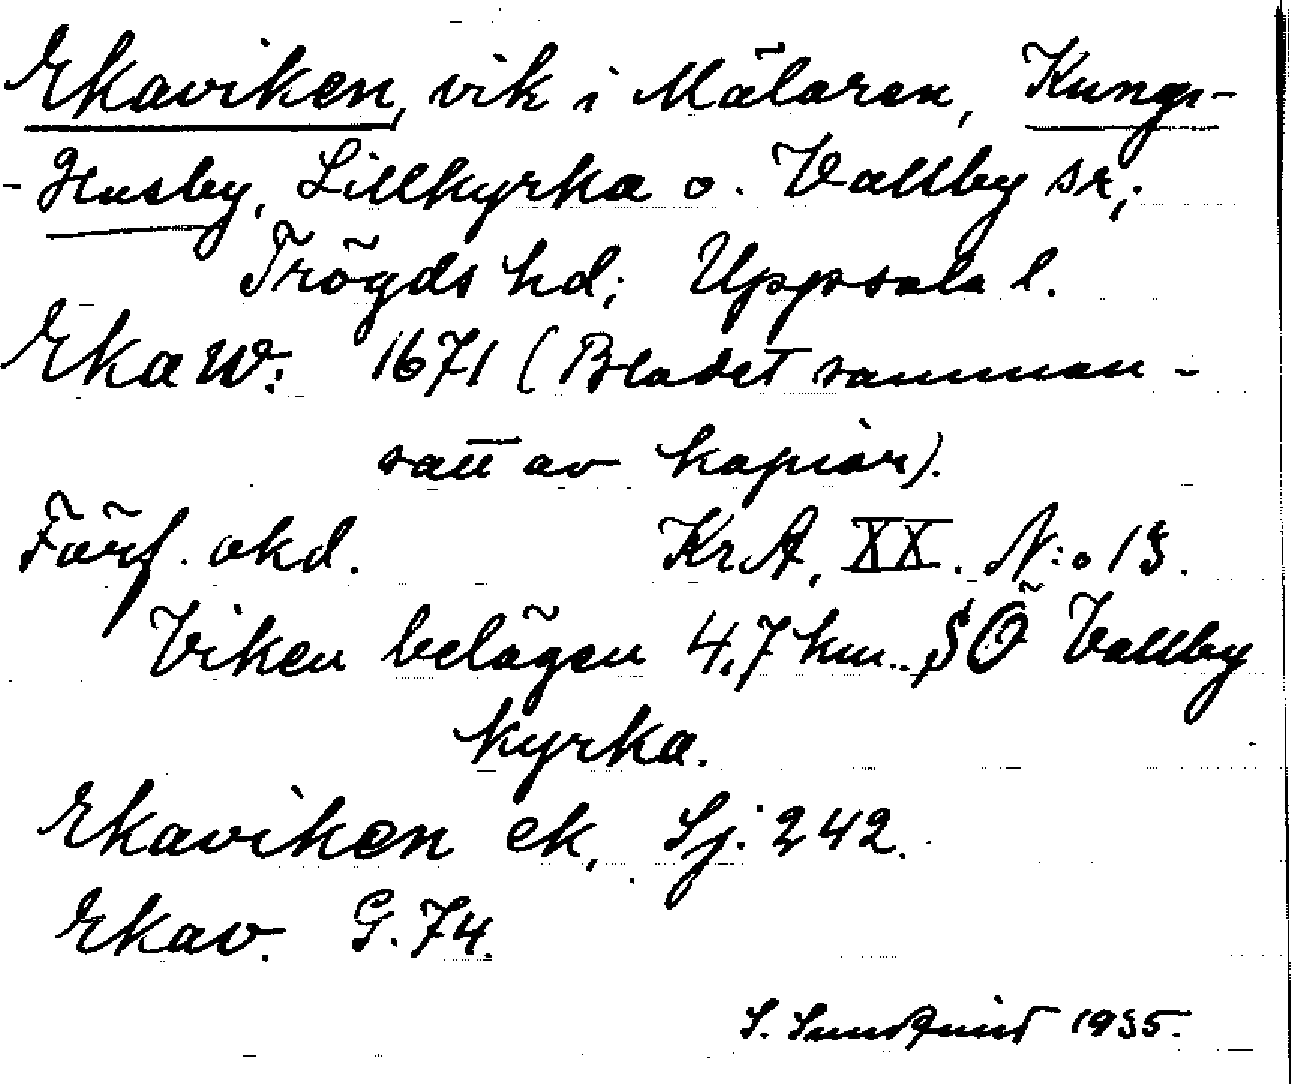 Ekaviken, vik i Mälaren, Kungs-
-Husby, Lillkyrka o. Vallby sr;
Trögds hd; Uppsala l.
Eka W: 1671 (Bladet samman-
satt av kopior).
Förf. okd. KrA, XX. N:o 13.
Viken belägen 4,7 km. SÖ Vallby
kyrka.
Ekaviken ek, Sj. 242.
Ekav. G. 74.
S. Sundqvist 1935.